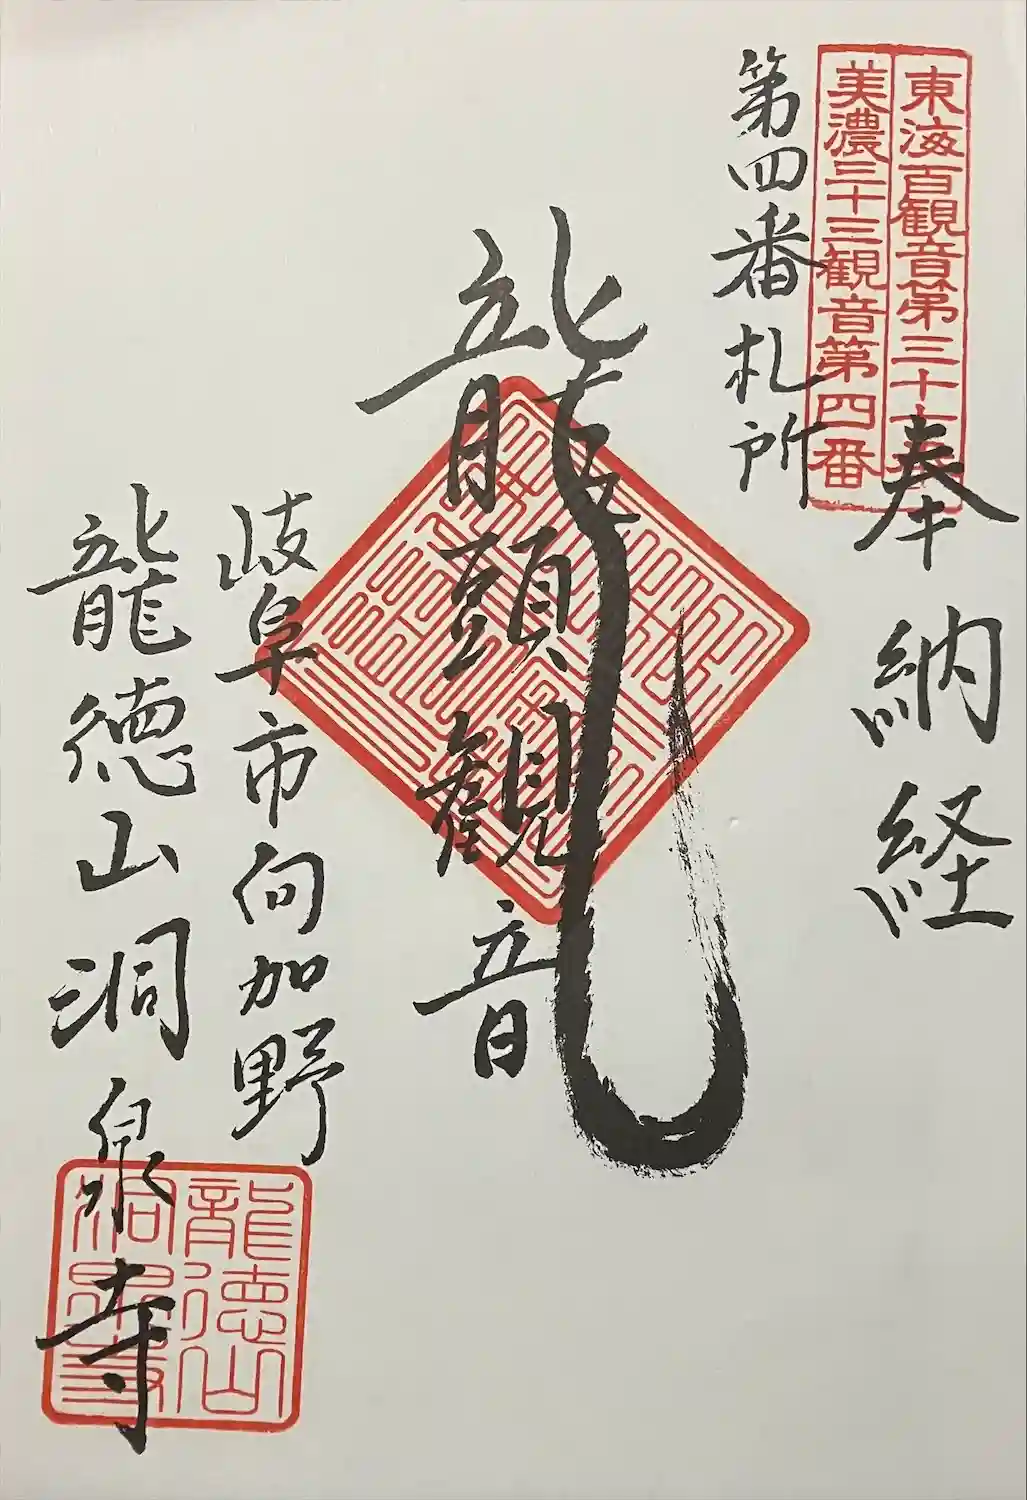 東海百観音第三十七番
美濃三十三観音第四番
奉納経
第四番札所
龍頭観音
岐阜市向加野
龍徳山洞泉寺
龍徳山
洞泉寺